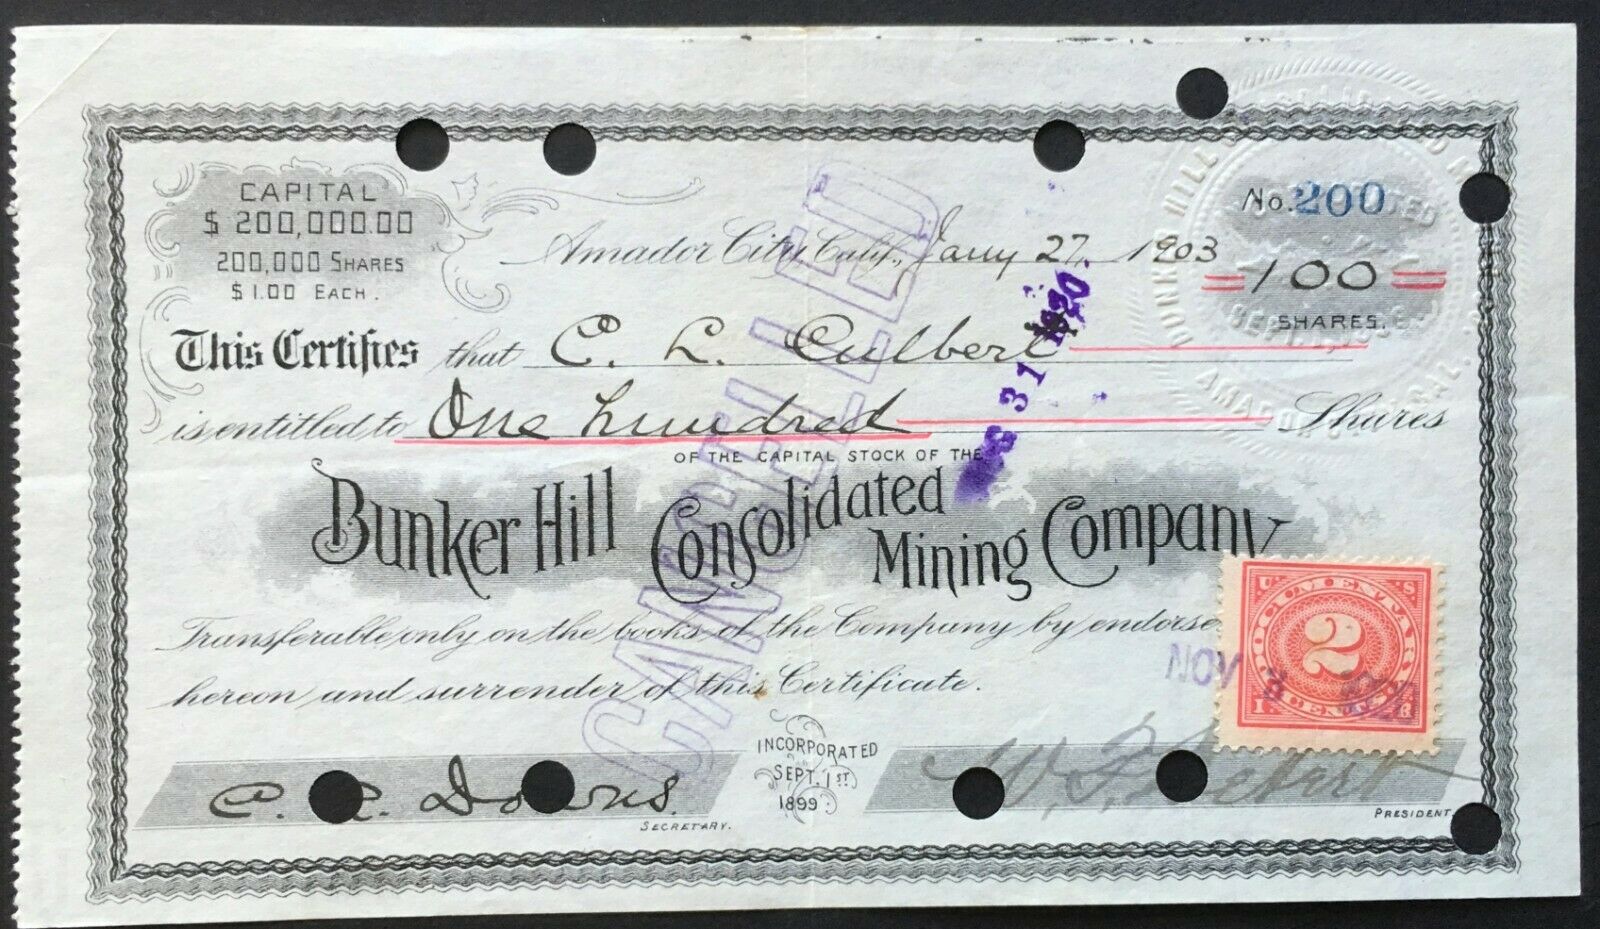 CAPITAL
$ 200,000.00
200,000 SHARES
$ 1.00 EACH.
No. 200
Amador City, Calif., Jany 27, 1903
= 100 =
SHARES.
This Certifies that C. L. Culbert
is entitled to One hundred Shares
OF THE CAPITAL STOCK OF THE
Bunker Hill Consolidated Mining Company
Transferable only on the books of the Company by endorse
hereon and surrender of this Certificate.
CANCELLED
31 1920
U. S.
DOCUMENTARY
2
NOV 1920
INCORPORATED
SEPT. 1ST
1899
C. R. Downs.
SECRETARY.
PRESIDENT.
BUNKER HILL CONSOLIDATED